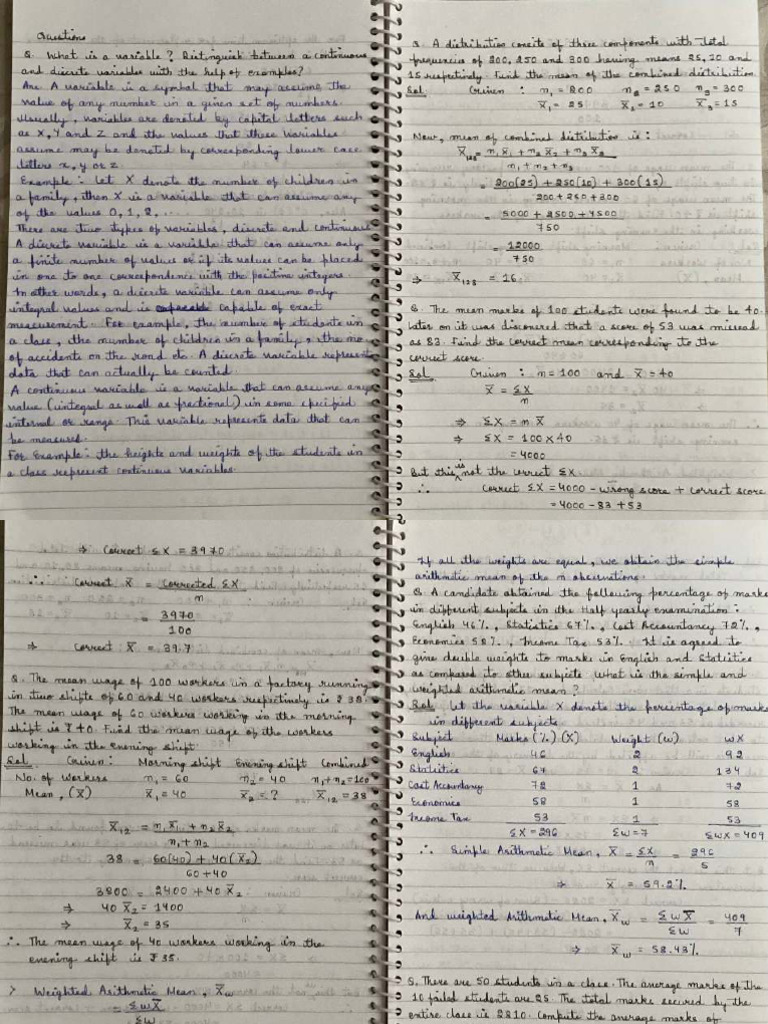 Questions
Q. What is a variable? Distinguish between a continuous
and discrete variables with the help of examples?
Ans A variable is a symbol that may assume the
value of any number in a given set of numbers.
Usually, variables are denoted by capital letters such
as X, Y and Z and the values that these variables
assume may be denoted by corresponding lower case
letters x, y or z.
Example: Let X denote the number of children in
a family, then X is a variable that can assume any
of the values 0, 1, 2, ...
There are two types of variables, discrete and continuous
A discrete variable is a variable that can assume only
a finite number of values or if its values can be placed
in one to one correspondence with the positive integers.
In other words, a discrete variable can assume only
integral values and is capable of exact
measurement. For example, the number of students in
a class, the number of children in a family, the no.
of accidents on the road etc. A discrete variable represent
data that can actually be counted.
A continuous variable is a variable that can assume any
value (integral as well as fractional) in some specified
interval or range. This variable represents data that can
be measured.
For Example: the heights and weights of the students in
a class represent continuous variables.
Q. A distribution consists of three components with total
frequencies of 200, 250 and 300 having means 25, 10 and
15 respectively. Find the mean of the combined distribution.
Sol Given: n₁ = 200 n₂ = 250 n₃ = 300
X̄₁ = 25 X̄₂ = 10 X̄₃ = 15
Now, mean of combined distribution is:
X̄₁₂₃ = n₁X̄₁ + n₂X̄₂ + n₃X̄₃
n₁ + n₂ + n₃
= 200(25) + 250(10) + 300(15)
200 + 250 + 300
= 5000 + 2500 + 4500
750
= 12000
750
⇒ X̄₁₂₃ = 16.
Q. The mean marks of 100 students were found to be 40.
Later on it was discovered that a score of 53 was misread
as 83. Find the correct mean corresponding to the
correct score.
Sol Given: n = 100 and X̄ = 40
X̄ = ΣX
n
⇒ ΣX = n X̄
⇒ ΣX = 100 × 40
= 4000
But this is not the correct ΣX
∴ Correct ΣX = 4000 - wrong score + correct score
= 4000 - 83 + 53
⇒ Correct ΣX = 3970
∴ Correct X̄ = Corrected ΣX
n
= 3970
100
⇒ Correct X̄ = 39.7
Q. The mean wage of 100 workers in a factory running
in two shifts of 60 and 40 workers respectively is ₹ 38.
The mean wage of 60 workers working in the morning
shift is ₹ 40. Find the mean wage of the workers
working in the evening shift.
Sol Given: Morning shift Evening shift Combined
No. of Workers n₁ = 60 n₂ = 40 n₁+n₂ = 100
Mean, (X̄) X̄₁ = 40 X̄₂ = ? X̄₁₂ = 38
X̄₁₂ = n₁X̄₁ + n₂X̄₂
n₁ + n₂
38 = 60(40) + 40(X̄₂)
60 + 40
3800 = 2400 + 40 X̄₂
⇒ 40 X̄₂ = 1400
⇒ X̄₂ = 35
∴ The mean wage of 40 workers working in the
evening shift is ₹ 35.
> Weighted Arithmetic Mean, X̄w
= ΣwX̄
Σw
If all the weights are equal, we obtain the simple
arithmetic mean of the n observations.
Q. A candidate obtained the following percentage of marks
in different subjects in the Half yearly examination:
English 46%, Statistics 67%, Cost Accountancy 72%,
Economics 58%, Income Tax 53%. It is agreed to
give double weights to marks in English and Statistics
as compared to other subjects what is the simple and
weighted arithmetic mean?
Sol Let the variable X denote the percentage of marks
in different subjects.
Subject Marks (%) (X) Weight (w) WX
English 46 2 92
Statistics 67 2 134
Cost Accountancy 72 1 72
Economics 58 1 58
Income Tax 53 1 53
ΣX = 296 Σw = 7 ΣWX = 409
∴ Simple Arithmetic Mean, X̄ = ΣX = 296
n 5
⇒ X̄ = 59.2%
And weighted Arithmetic Mean, X̄w = ΣwX̄ = 409
Σw 7
⇒ X̄w = 58.43%
Q. There are 50 students in a class. The average marks of the
10 failed students are 25. The total marks secured by the
entire class is 2810. Compute the average marks of